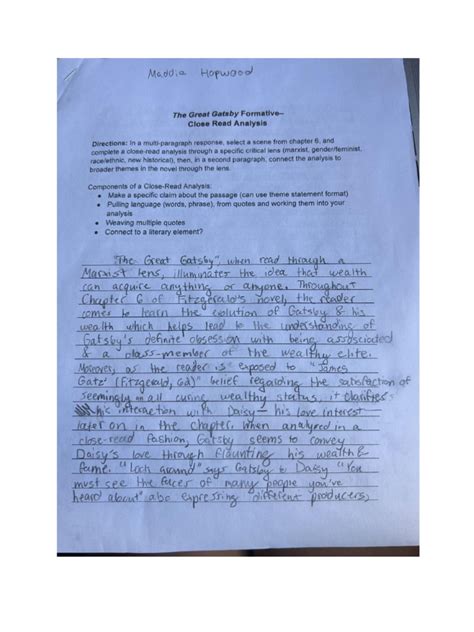 Maddia Hopwood
The Great Gatsby Formative–
Close Read Analysis
Directions: In a multi-paragraph response, select a scene from chapter 6, and
complete a close-read analysis through a specific critical lens (marxist, gender/feminist,
race/ethnic, new historical), then, in a second paragraph, connect the analysis to
broader themes in the novel through the lens.
Components of a Close-Read Analysis:
• Make a specific claim about the passage (can use theme statement format)
• Pulling language (words, phrase), from quotes and working them into your
analysis
• Weaving multiple quotes
• Connect to a literary element?
"The Great Gatsby", when read through a
Marxist lens, illuminates the idea that wealth
can acquire anything or anyone. Throughout
Chapter 6 of Fitzgerald's novel, the reader
comes to learn the evolution of Gatsby & his
wealth which helps lead to the understanding of
Gatsby's definite obsession with being assosciated
& a class-member of the wealthy elite.
Moreover, as the reader is exposed to "James
Gatz" (Fitzgerald, ) belief regarding the satisfaction of
seemingly all curing wealthy status, it clarifies
his interaction with Daisy – his love interest
later on in the chapter. When analyzed in a
close-read fashion, Gatsby seems to convey
Daisy's love through flaunting his wealth &
fame. "Look around" says Gatsby to Daisy "You
must see the faces of many people you've
heard about" also expressing different producers,